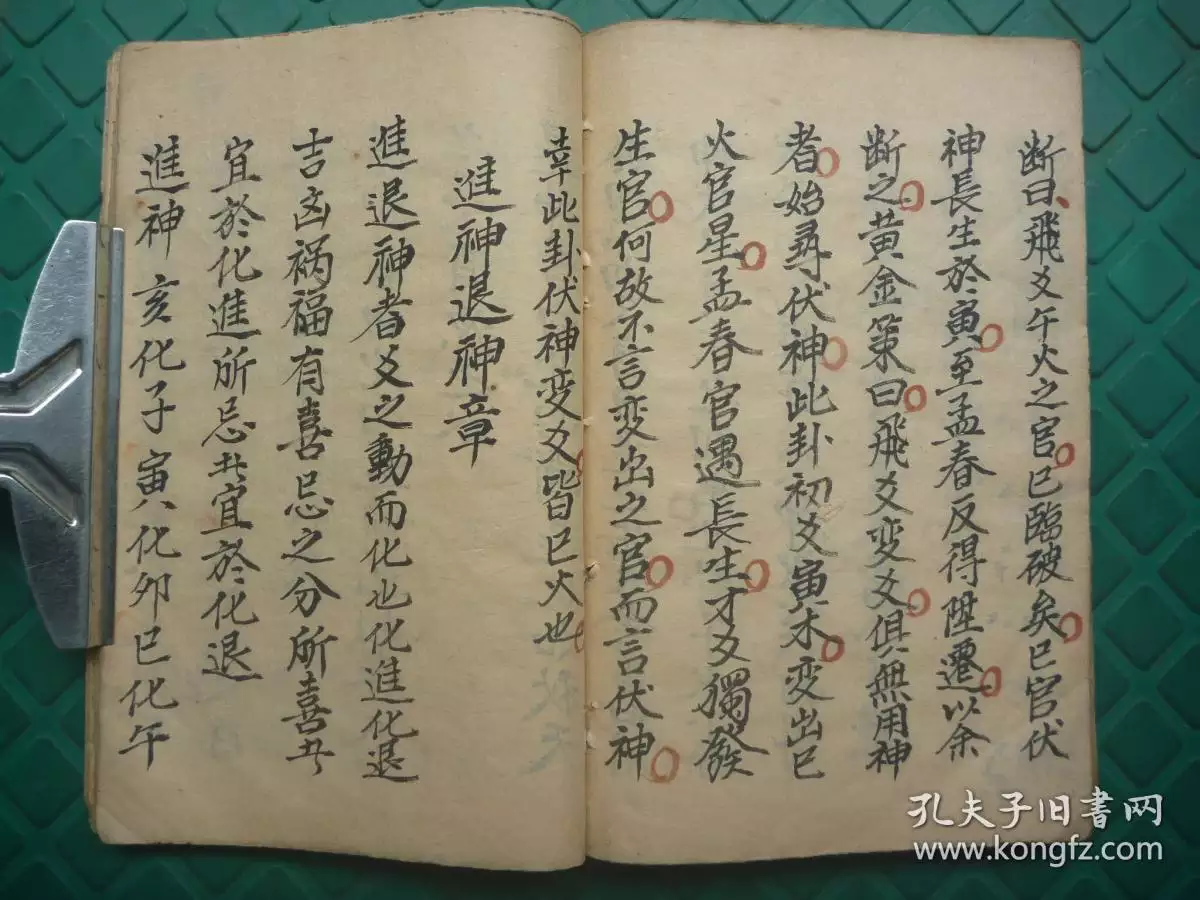 断曰飛爻午火之官已臨破矣巳官伏
神長生於寅至孟春反得陞遷以余
断之黄金策曰飛爻変爻俱無用神
者始尋伏神此卦初爻寅木变出巳
火官星孟春官遇長生才爻獨發
生官何故不言变出之官而言伏神
幸此卦伏神变爻皆巳火也
進神退神章
進退神者爻之動而化也化進化退
吉凶祸福有喜忌之分所喜者
宜於化進所忌者宜於化退
進神亥化子寅化卯巳化午
孔夫子旧书网
www.kongfz.com